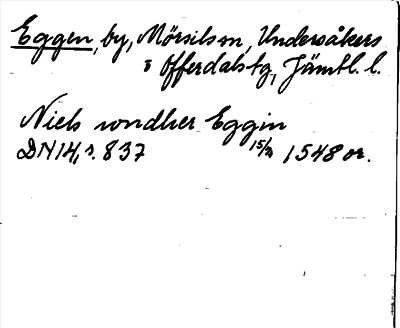 Eggen, by, Mörsils sn, Undersåkers
o Offerdals tg, Jämtl. l.
Niels wndher Eggin
DN14, s. 837 15/2 1548 or.